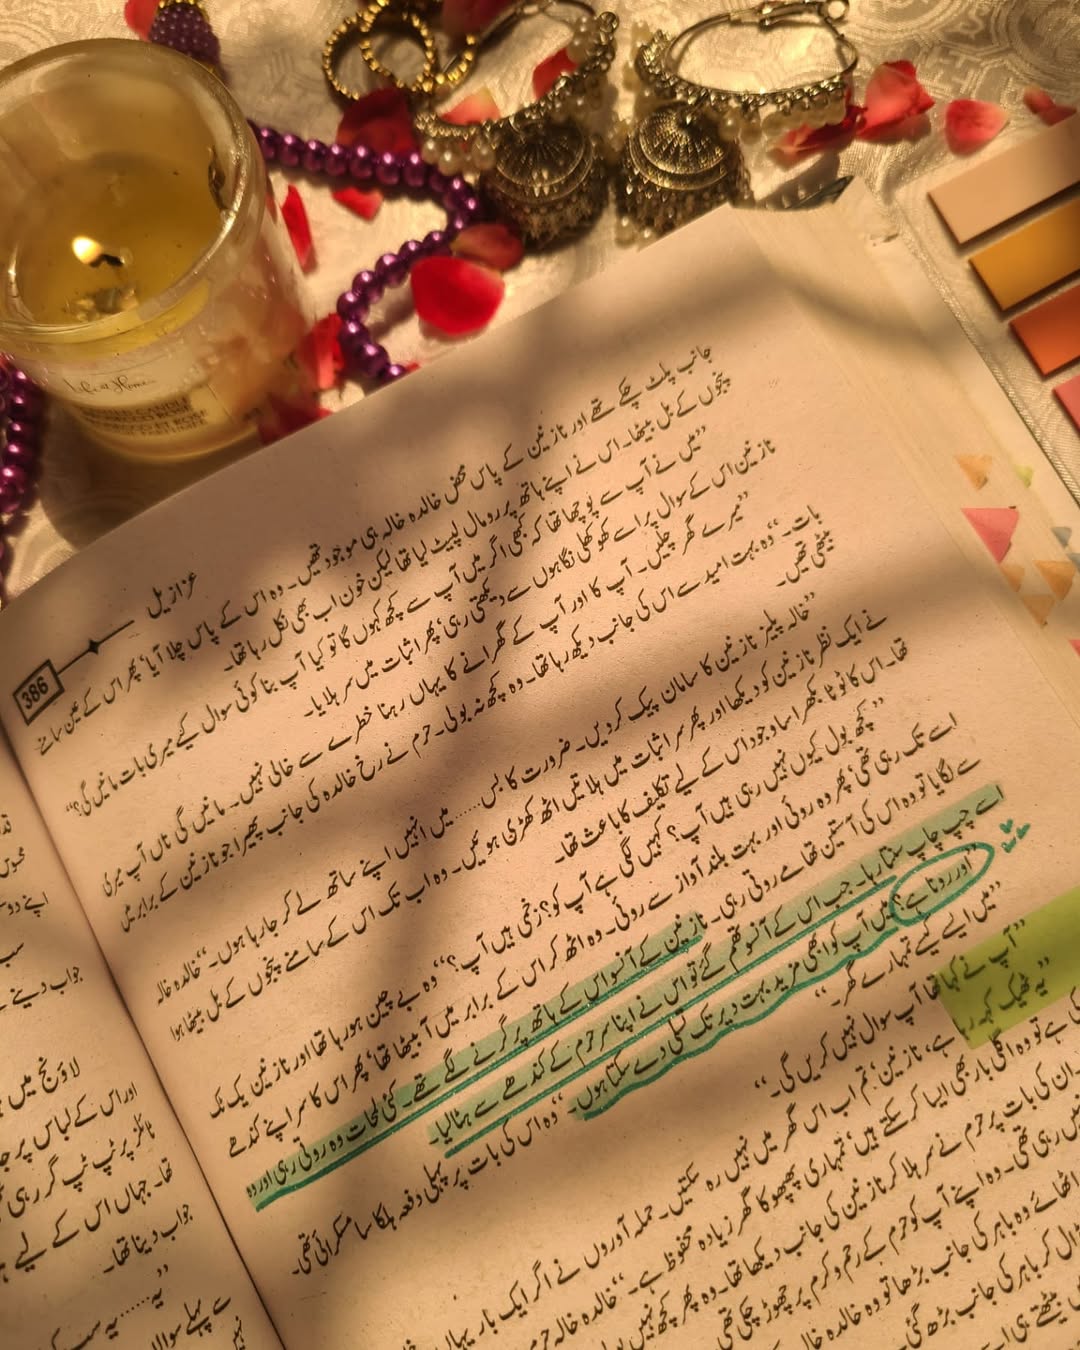 386
عزازیل
جانب پلٹ چکے تھے اور نازنین کے پاس محض خالدہ خالہ ہی موجود تھیں۔ وہ اس کے پاس چلا آیا، پھر اس کے عین سامنے
پنجوں کے بل بیٹھا۔ اس نے اپنے ہاتھ پر رومال لپیٹ لیا تھا لیکن خون اب بھی نکل رہا تھا۔
”میں نے آپ سے پوچھا تھا کہ کبھی اگر میں آپ سے کچھ کہوں گا تو کیا آپ بنا کوئی سوال کیے میری بات مانیں گی؟“
نازنین اس کے سوال پر اسے کھوکھلی نگاہوں سے دیکھتی رہی، پھر اثبات میں سر ہلایا۔
”میرے گھر چلیں۔ آپ کا اور آپ کے گھرانے کا یہاں رہنا خطرے سے خالی نہیں۔ مانیں گی ناں آپ میری
بات۔“ وہ بہت امید سے اس کی جانب دیکھ رہا تھا۔ وہ کچھ نہ بولی۔ حرم نے رخ خالدہ کی جانب پھیرا جو نازنین کے برابر میں
بیٹھی تھیں۔
”خالہ پلیز نازنین کا سامان پیک کر دیں۔ ضرورت کا بس...... میں انہیں اپنے ساتھ لے کر جا رہا ہوں۔“ خالدہ خالہ
نے ایک نظر نازنین کو دیکھا اور پھر سر اثبات میں ہلاتیں اٹھ کھڑی ہوئیں۔ وہ اب تک اس کے سامنے پنجوں کے بل بیٹھا ہوا
تھا۔ اس کا ٹوٹا بکھرا سا وجود اس کے لیے تکلیف کا باعث تھا۔
”کچھ بول کیوں نہیں رہی ہیں آپ؟ کہیں لگی ہے آپ کو؟ زخمی ہیں آپ؟“ وہ بے چین ہو رہا تھا اور نازنین یک ٹک
اسے تک رہی تھی، پھر وہ روئی اور بہت بلند آواز سے روئی۔ وہ اٹھ کر اس کے برابر میں آ بیٹھا تھا، پھر اس کا سر اپنے کندھے
سے لگایا تو وہ اس کی آستین تھامے روتی رہی۔ نازنین کے آنسو اس کے ہاتھ پر گرنے لگے تھے۔ کئی لمحات وہ روتی رہی اور وہ
اسے چپ چاپ سنتا رہا۔ جب اس کے آنسو تھم گئے تو اس نے اپنا سر حرم کے کندھے سے ہٹا لیا۔
”اور رونا ہے؟ میں آپ کو ابھی مزید بہت دیر تک تسلی دے سکتا ہوں۔“ وہ اس کی بات پر پہلی دفعہ ہلکا سا مسکرائی تھی۔
”میں ایسے کیسے تمہارے گھر۔“
”آپ نے کہا تھا آپ سوال نہیں کریں گی۔“
”یہ ٹھیک کہہ رہا ہے، نازنین، تم اب اس گھر میں نہیں رہ سکتیں۔ حملہ آوروں نے اگر ایک بار یہاں
ہے تو وہ اگلی بار بھی ایسا کر سکتے ہیں، تمہاری پھپھو کا گھر زیادہ محفوظ ہے۔“ خالدہ خالہ
ان کی بات پر حرم نے سر ہلا کر نازنین کی جانب دیکھا تھا۔ وہ پھر کچھ نہیں
نہیں رہی تھی۔ وہ اپنے آپ کو حرم کے رحم و کرم پر چھوڑ چکی تھی
اٹھائے وہ باہر کی جانب بڑھا تو وہ خالدہ
ڈال کر باہر کی جانب بڑھ گئی
بیٹھتے ہی
اپنے
سب
جواب دینے
لاؤنج میں
اور اس کے لباس پر
ٹائلز پر ٹپ ٹپ گر رہی
تھا۔ جہاں اس کے لیے
جواب دینا تھا۔
”یہ...... یہ سب
سے پہلے سوالا
نہیں